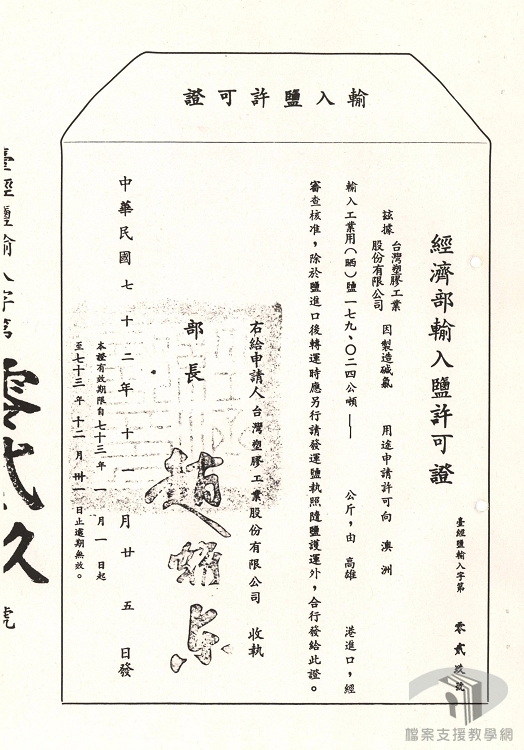 證可許鹽入輸
經濟部輸入鹽許可證
臺經鹽輸入字第 零貳玖號
茲據 台灣塑膠工業股份有限公司 因製造碱氯 用途申請許可向 澳洲
輸入工業用（晒）鹽一七九、〇二四公噸—— 公斤，由 高雄 港進口，經
審查核准，除於鹽進口後轉運時應另行請發運鹽執照隨鹽護運外，合行發給此證。
右給申請人 台灣塑膠工業股份有限公司 收執
部長 趙耀東
本證有效期限自七十三年 一 月 一 日起
至七十三年 十二 月 卅一 日止逾期無效。
中華民國七十二年十一月廿五日發
臺經鹽輸入字第零貳玖號
檔案支援教學網